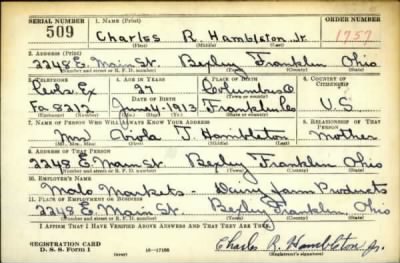 SERIAL NUMBER 1. NAME (Print) ORDER NUMBER
509 Charles R. Hambleton Jr. 1757
(First) (Middle) (Last)
2. ADDRESS (Print)
2248 E. Main St. Bexley Franklin Ohio
(Number and street or R. F. D. number) (Town) (County) (State)
3. TELEPHONE 4. AGE IN YEARS 5. PLACE OF BIRTH 6. COUNTRY OF CITIZENSHIP
Cols Ex 27 Columbus O.
DATE OF BIRTH (Town or county)
Fa 8212 June 14 1913 Franklin Co U S
(Mo.) (Day) (Yr.) (State or country)
7. NAME OF PERSON WHO WILL ALWAYS KNOW YOUR ADDRESS 8. RELATIONSHIP OF THAT PERSON
Mrs Viola J. Hambleton Mother
(Mr., Mrs., Miss) (First) (Middle) (Last)
9. ADDRESS OF THAT PERSON
2248 E. Main St. Bexley Franklin Ohio
(Number and street or R. F. D. number) (Town) (County) (State)
10. EMPLOYER'S NAME
Markets - Dairy Farm Products
11. PLACE OF EMPLOYMENT OR BUSINESS
2248 E. Main St. Bexley Franklin, Ohio
(Number and street or R. F. D. number) (Town) (County) (State)
I AFFIRM THAT I HAVE VERIFIED ABOVE ANSWERS AND THAT THEY ARE TRUE.
REGISTRATION CARD
D. S. S. Form 1 (over) 16-17105 Charles R. Hambleton Jr.
(Registrant's signature)